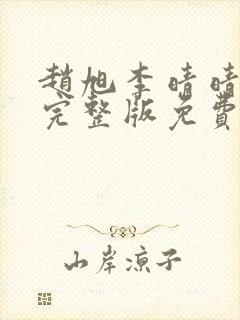 趙旭李晴晴
完整版免費
山岸凉子